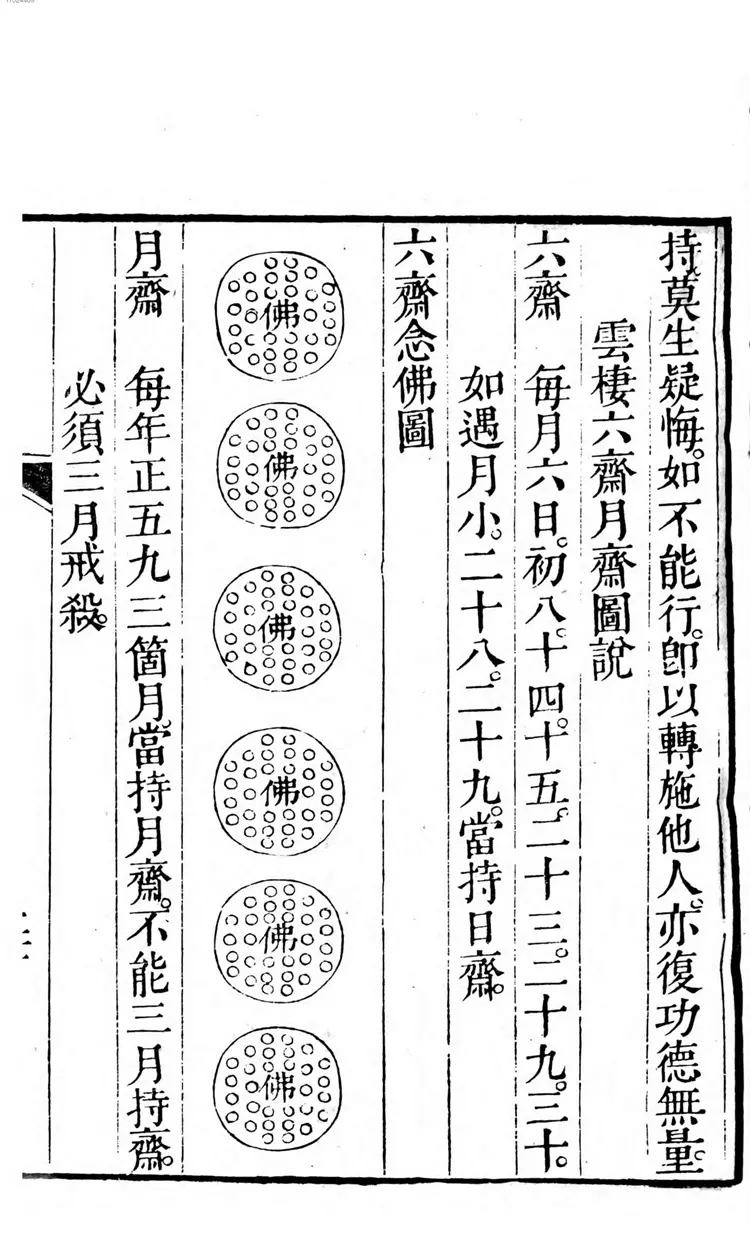 持莫生疑悔。如不能行。卽以轉施他人。亦復功德無量。
雲棲六齋月齋圖說
六齋　每月六日。初八。十四。十五。二十三。二十九。三十。
如遇月小。二十八。二十九。當持日齋。
六齋念佛圖
佛
佛
佛
佛
佛
佛
月齋　每年正五九三箇月。當持月齋。不能三月持齋。
必須三月戒殺。